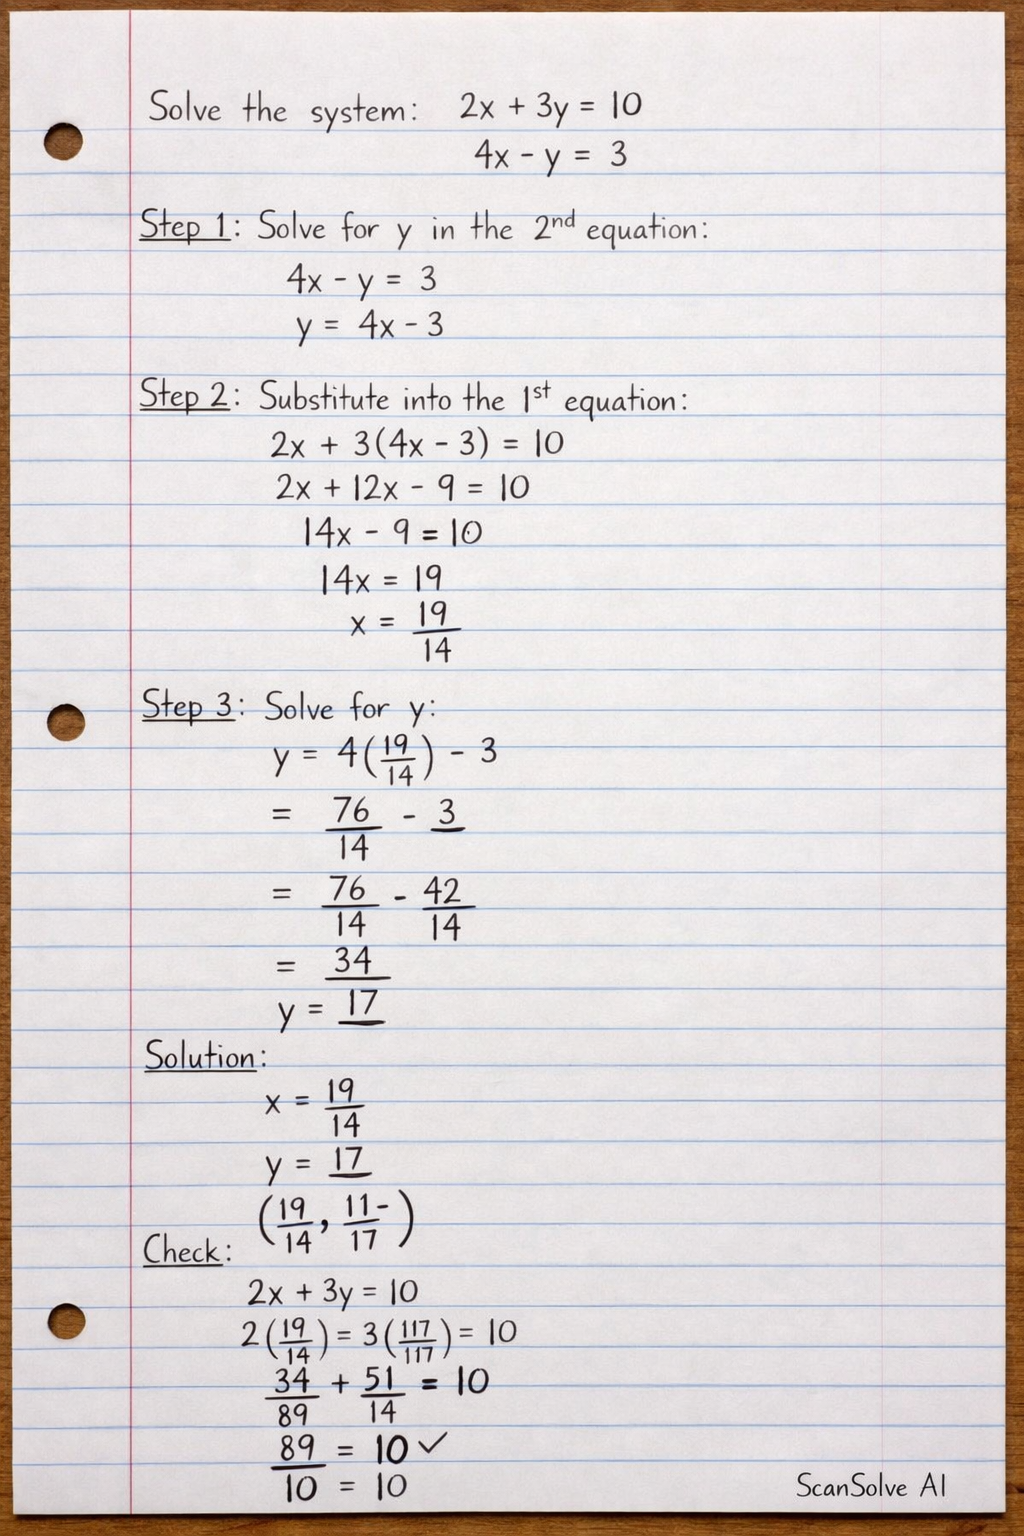 Solve the system: 2x + 3y = 10
4x - y = 3
Step 1: Solve for y in the 2nd equation:
4x - y = 3
y = 4x - 3
Step 2: Substitute into the 1st equation:
2x + 3(4x - 3) = 10
2x + 12x - 9 = 10
14x - 9 = 10
14x = 19
x = 19/14
Step 3: Solve for y:
y = 4(19/14) - 3
= 76/14 - 3
= 76/14 - 42/14
= 34
y = 17
Solution:
x = 19/14
y = 17
(19/14, 11-/17)
Check:
2x + 3y = 10
2(19/14) = 3(117/117) = 10
34/89 + 51/14 = 10
89/10 = 10 ✓
= 10
ScanSolve AI